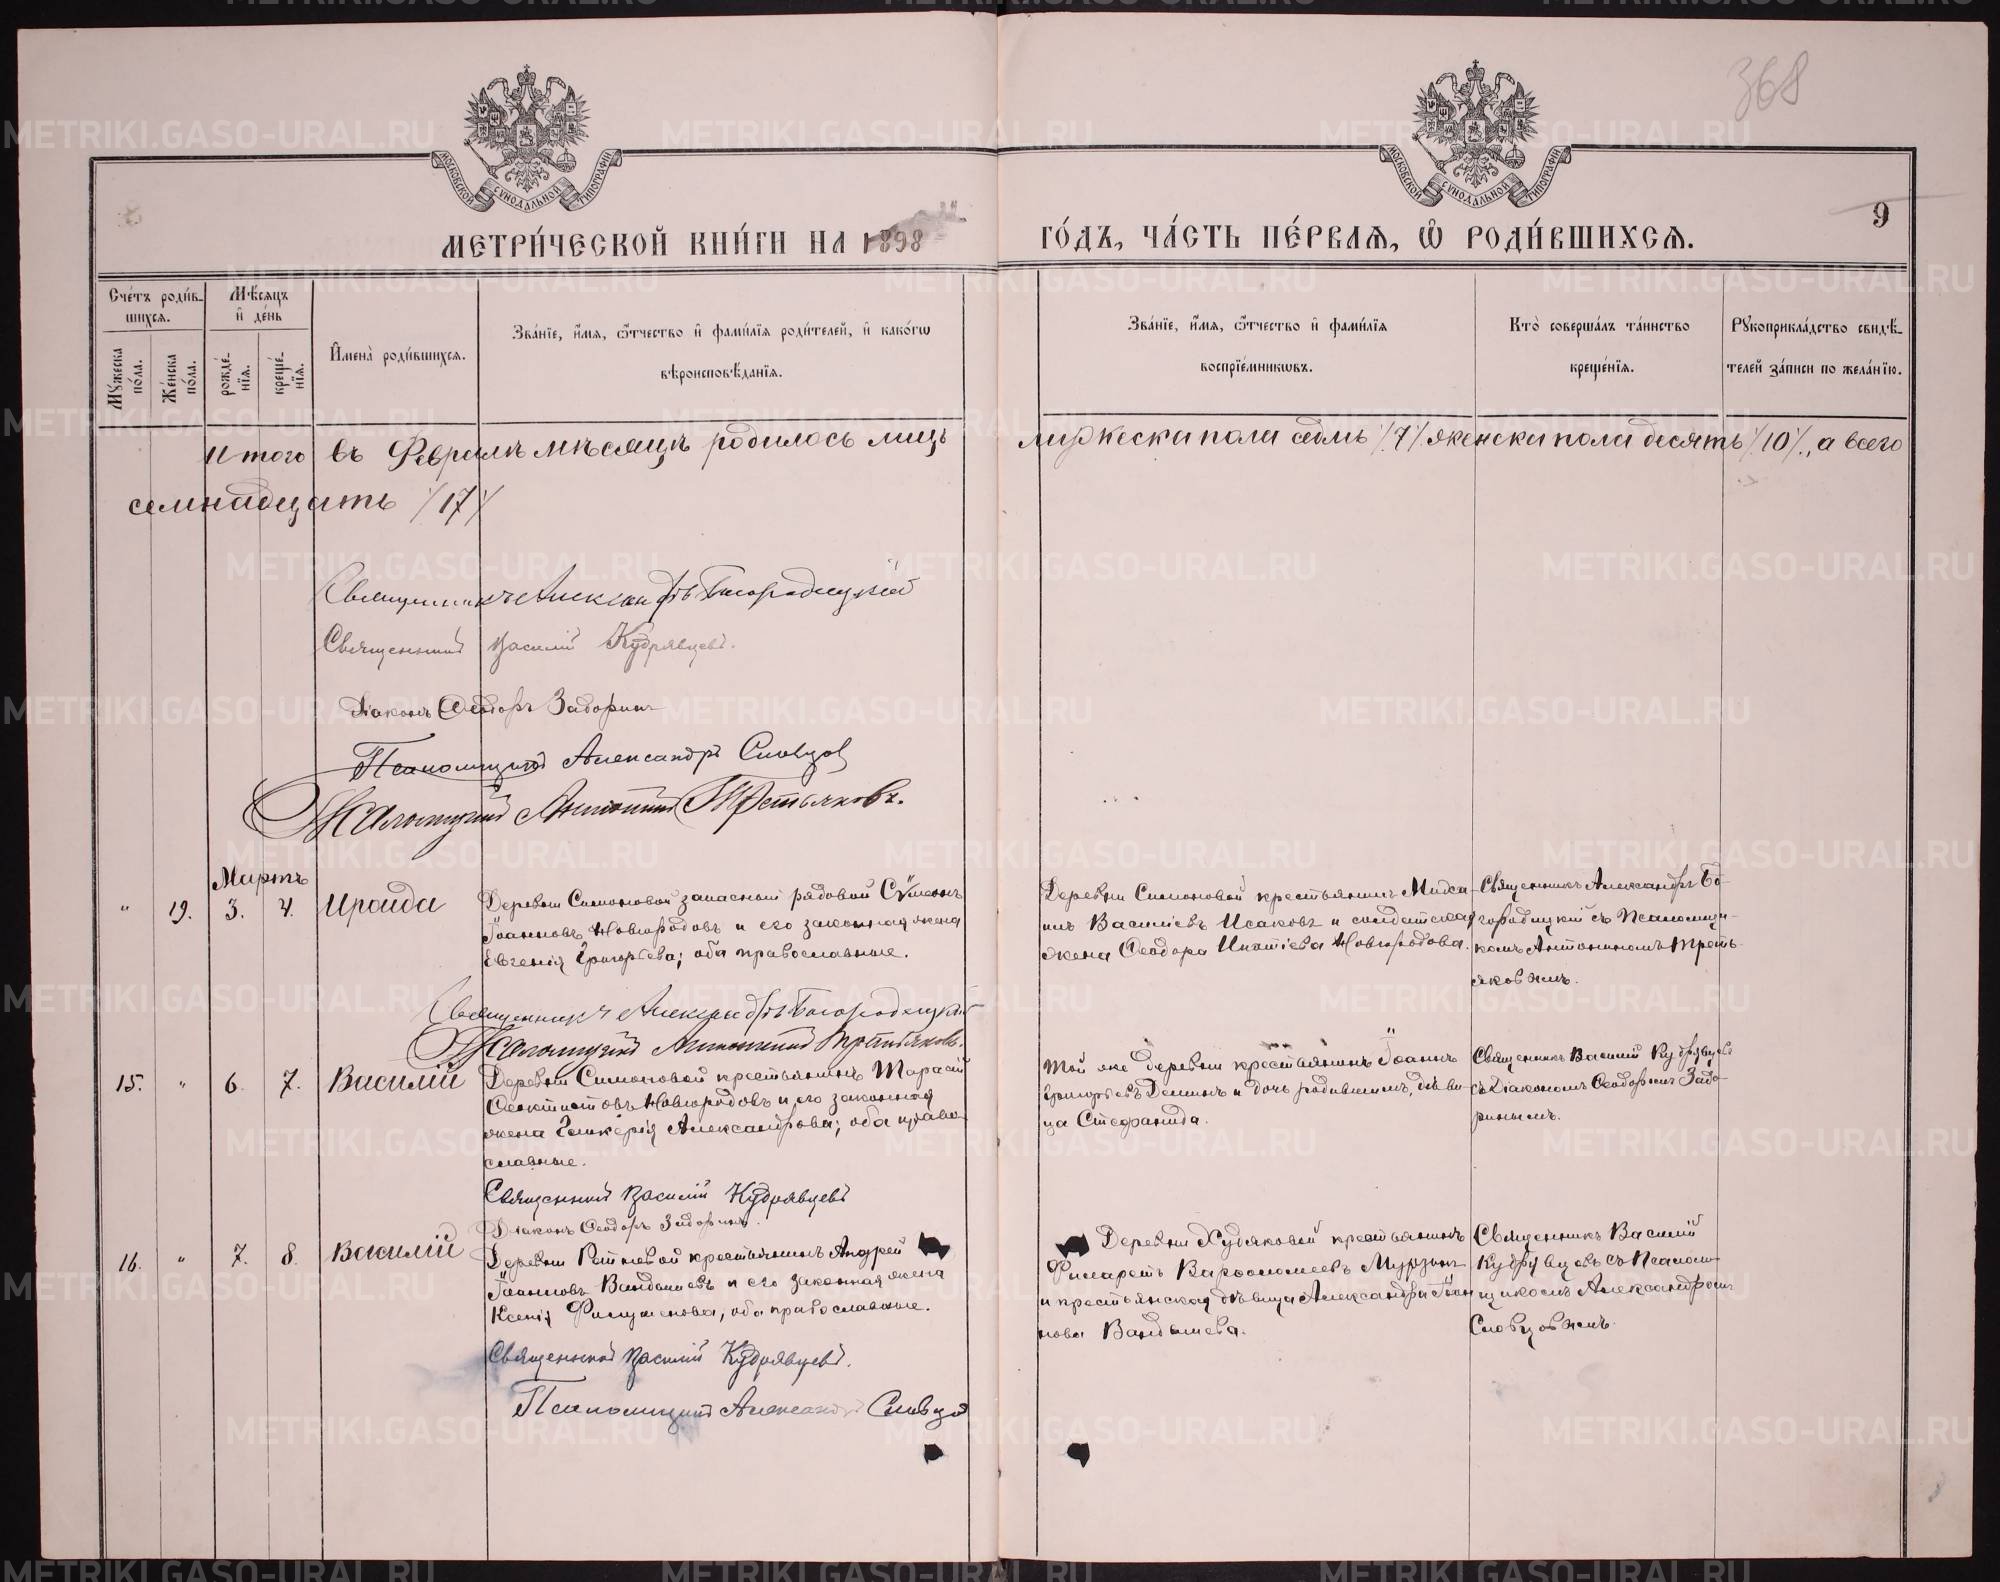 368
МОСКОВСКОЙ СѴНОДАЛЬНОЙ ТИПОГРАФІИ
МОСКОВСКОЙ СѴНОДАЛЬНОЙ ТИПОГРАФІИ
9
МЕТРИ́ЧЕСКОЙ КНИ́ГИ НА 1898 ГО́ДЪ, ЧА́СТЬ ПЕ́РВАЯ, Ѡ РОДИ́ВШИХСЯ.
Сче́тъ роди́в-
шихся.
Мꙋ́жеска
по́ла.
Же́нска
по́ла.
Мѣ́сяцъ
и҆ де́нь
рожде́-
нїя.
креще́-
нїя.
И҆мена̀ роди́вшихся.
Зва́нїе, и҆́мя, ѻ҆́тчество и҆ фами́лїя роди́телей, и҆ како́гѡ
вѣроисповѣ́данїя.
Зва́нїе, и҆́мя, ѻ҆́тчество и҆ фами́лїя
воспрїе́мникѡвъ.
Кто̀ соверша́лъ та́инство
креще́нїя.
Рꙋкоприкла́дство свидѣ́-
телей за́писи по жела́нїю.
Итого въ Февралѣ мѣсяцѣ родилось лицъ мужеска пола семь /7/ женска пола десять /10/, а всего
семнадцать /17/
Священникъ Александръ Богородицкій
Священникъ Василій Кудрявцевъ.
Діаконъ Ѳеодоръ Задоринъ
Псаломщикъ Александръ Словцов
Псаломщикъ Антонинъ Третьяковъ.
Мартъ
" 19. 3. 4. Ираида
Деревни Симоновой запасный рядовой Сѵмеонъ
Іоанновъ Новгородовъ и его законная жена
Евгенія Григорьева; оба православные.
Деревни Симоновой крестьянинъ Миха-
илъ Васильевъ Исаковъ и солдатская
жена Ѳеодора Игнатіева Новгородова.
Священникъ Александръ Бо-
городицкій съ Псаломщи-
комъ Антониномъ Треть-
яковымъ.
Священникъ Александръ Богородицкій
Псаломщикъ Антонинъ Третьяковъ.
15. " 6. 7. Василій
Деревни Симоновой крестьянинъ Тарасій
Ѳеоктистовъ Новгородовъ и его законная
жена Гликерія Александрова; оба право-
славные.
Той же деревни крестьянинъ Іоаннъ
Григорьевъ Деминъ и дочь родившихъ, дѣви-
ца Стефанида.
Священникъ Василій Кудрявцевъ
съ Діакономъ Ѳеодоромъ Задо-
ринымъ.
Священникъ Василій Кудрявцевъ
Діаконъ Ѳеодоръ Задоринъ.
16. " 7. 8. Василій
Деревни крестьянинъ Андрей
Іоанновъ Вандышевъ и его законная жена
Ксенія Филумѣнова, оба православные.
Деревни Худяковой крестьянинъ
Филаретъ Варѳоломеевъ Мурзинъ
и крестьянская дѣвица Александра Іоан
нова Вандышева.
Священникъ Василій
Кудрявцевъ съ Псалом-
щикомъ Александромъ
Словцовымъ.
Священникъ Василій Кудрявцевъ.
Псаломщикъ Александръ Словцо
METRIKI.GASO-URAL.RU